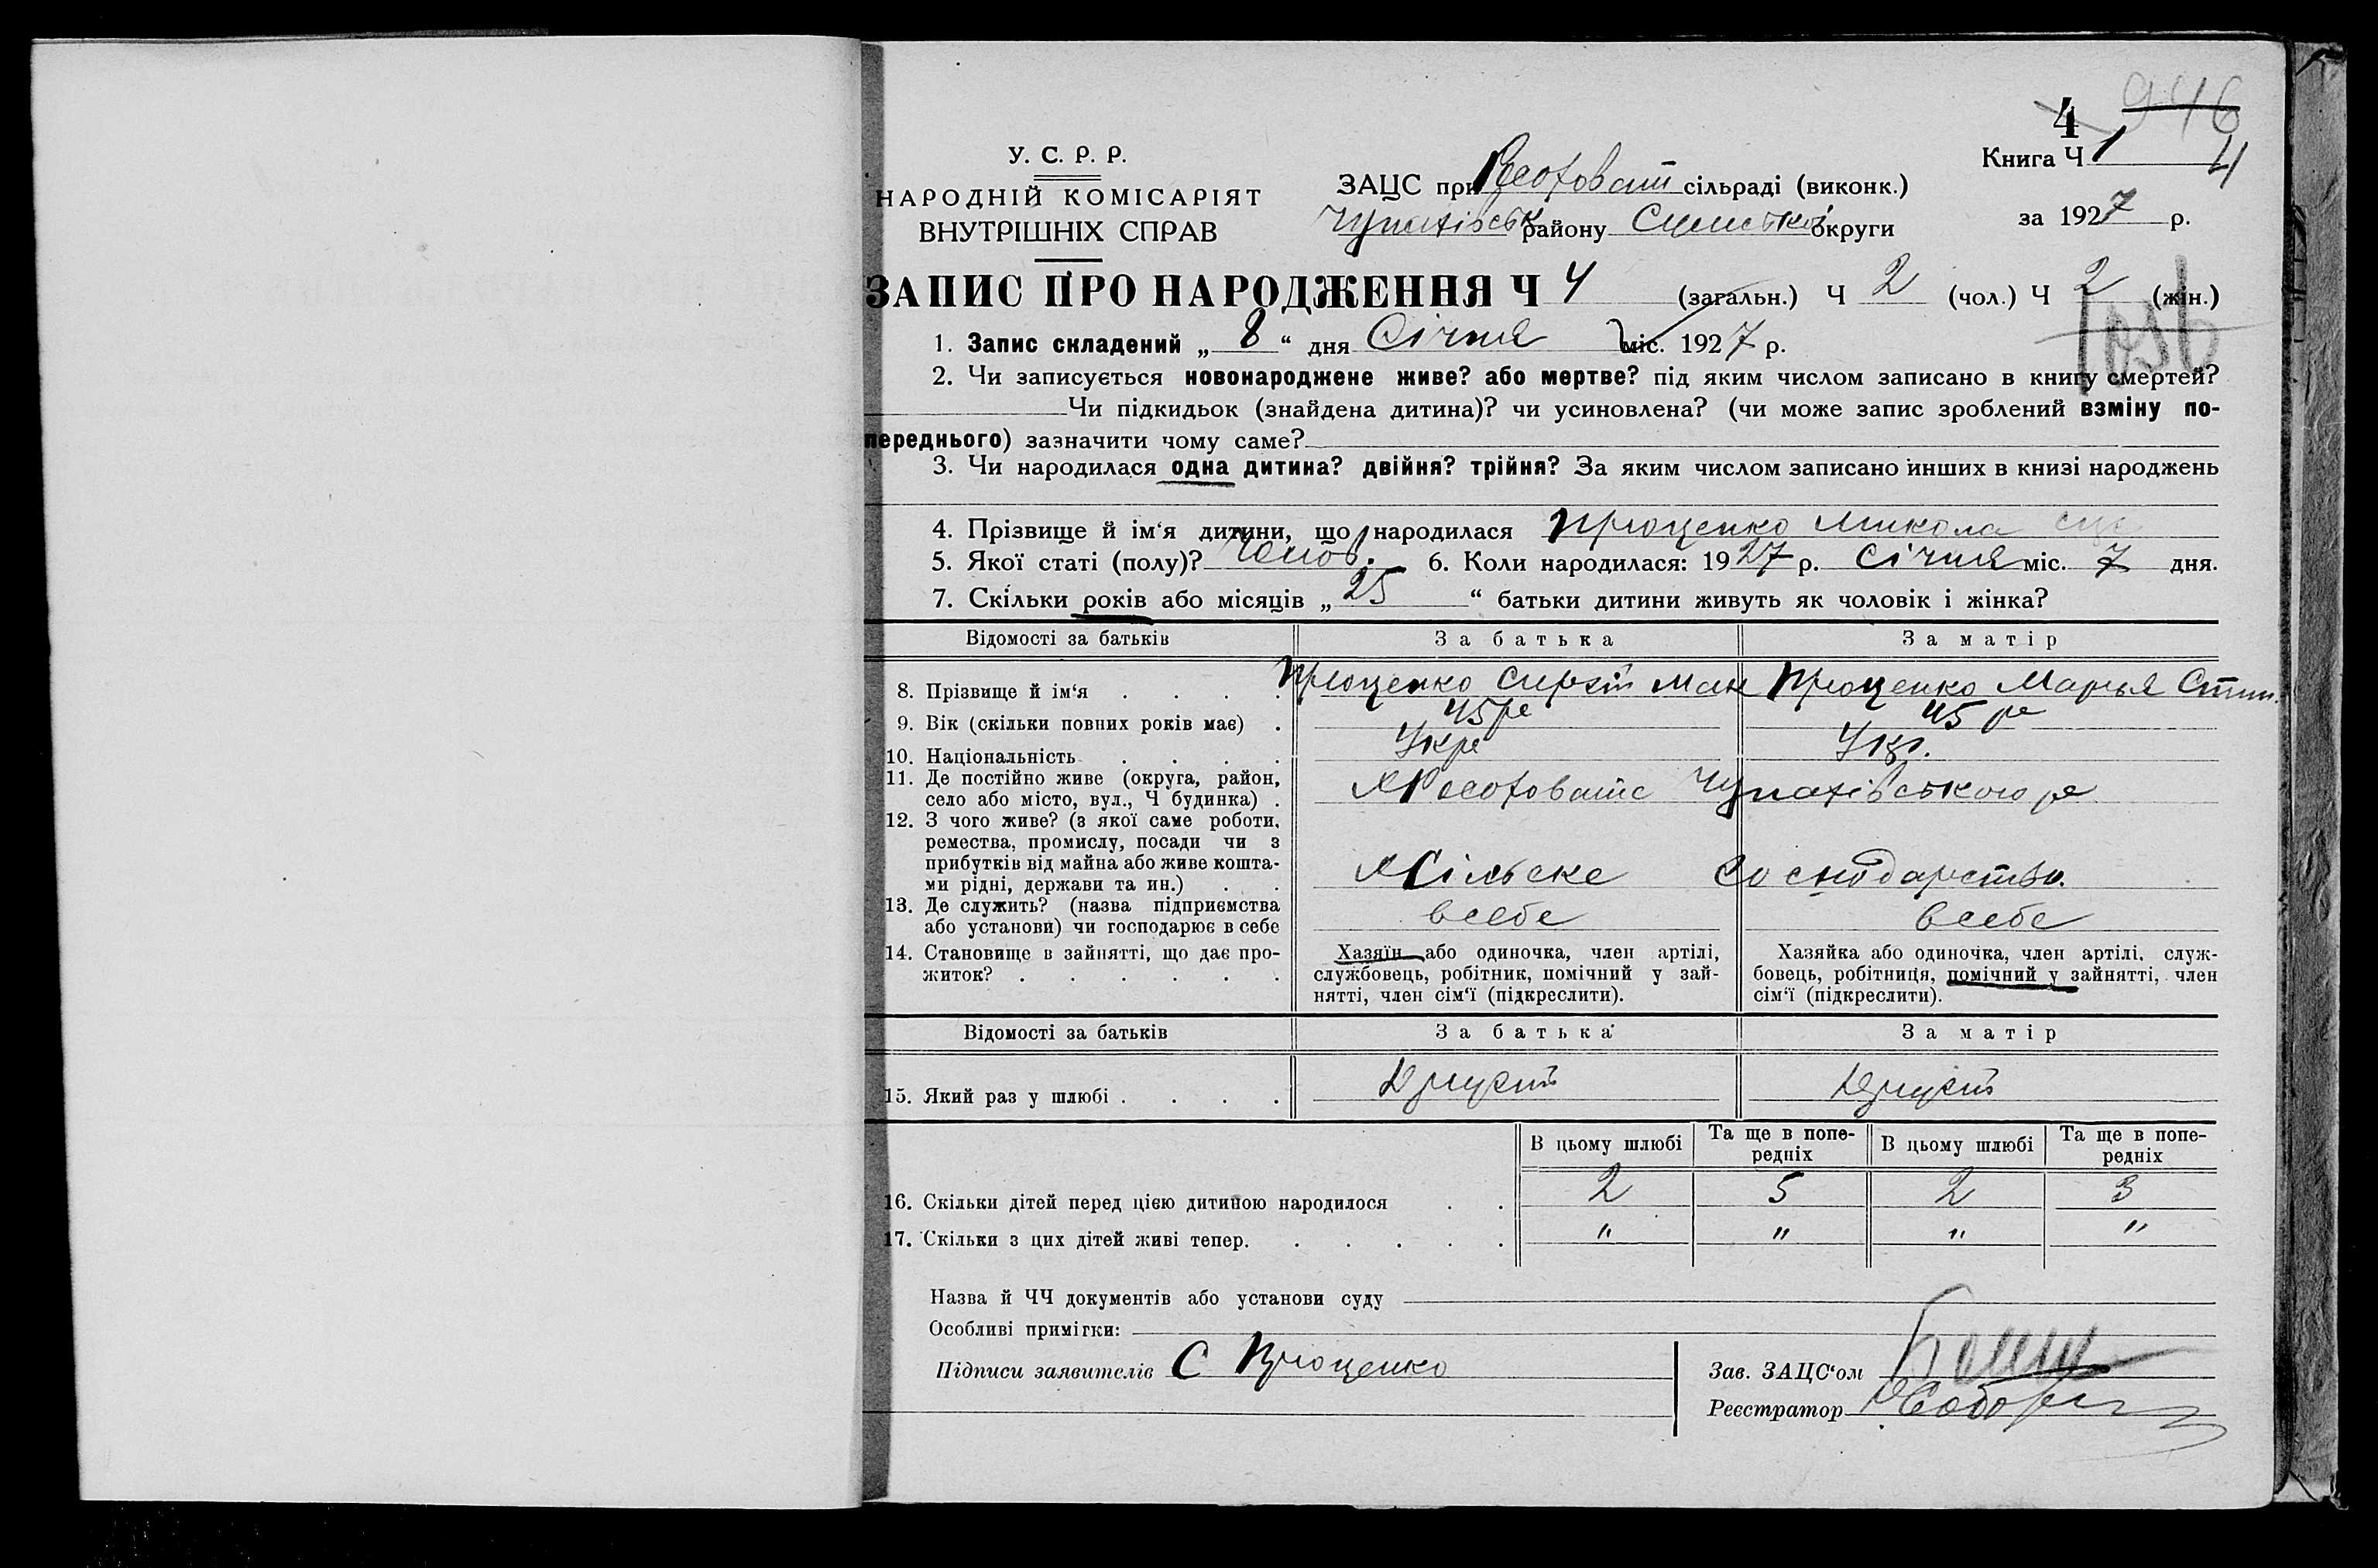 946
4
У. С. Р. Р.
Книга Ч 1 4
НАРОДНІЙ КОМІСАРІЯТ
ВНУТРІШНІХ СПРАВ
ЗАЦС при сільраді (виконк.)
району Сумської округи
за 1927 р.
ЗАПИС ПРО НАРОДЖЕННЯ Ч 4 (загальн.) Ч 2 (чол.) Ч 2 (жін.)
1. Запис складений „ 8 “ дня Січня міс. 1927 р.
2. Чи записується новонароджене живе? або мертве? під яким числом записано в книгу смертей?
Чи підкидьок (знайдена дитина)? чи усиновлена? (чи може запис зроблений взміну по-
переднього) зазначити чому саме?
3. Чи народилася одна дитина? двійня? трійня? За яким числом записано инших в книзі народжень
4. Прізвище й ім‘я дитини, що народилася Проценко Микола
5. Якої статі (полу)? 6. Коли народилася: 1927 р. Січня міс. 7 дня.
7. Скільки років або місяців „ 25 “ батьки дитини живуть як чоловік і жінка?
Відомості за батьків За батька За матір
8. Прізвище й ім‘я . . . . Проценко Сергій Проценко Марья
9. Вік (скільки повних років має) . 45 р 45 р
10. Національність . . . . Укр Укр.
11. Де постійно живе (округа, район,
село або місто, вул., Ч будинка) .
12. З чого живе? (з якої саме роботи,
ремества, промислу, посади чи з
прибутків від майна або живе кошта-
ми рідні, держави та ин.) . . Сільске господарство.
13. Де служить? (назва підприємства
або установи) чи господарює в себе всебе всебе
14. Становище в зайнятті, що дає про-
житок? . . . . . .
Хазяїн або одиночка, член артілі,
службовець, робітник, помічний у зай-
нятті, член сім‘ї (підкреслити).
Хазяйка або одиночка, член артілі, служ-
бовець, робітниця, помічний у зайнятті, член
сім‘ї (підкреслити).
Відомості за батьків За батька За матір
15. Який раз у шлюбі . . . . Другий Другий
В цьому шлюбі Та ще в попе-редніх В цьому шлюбі Та ще в попе-редніх
16. Скільки дітей перед цією дитиною народилося . . 2 5 2 3
17. Скільки з цих дітей живі тепер. . . . . . " " " "
Назва й ЧЧ документів або установи суду
Особливі примігки:
Підписи заявителів С Проценко
Зав. ЗАЦС‘ом
Реєстратор